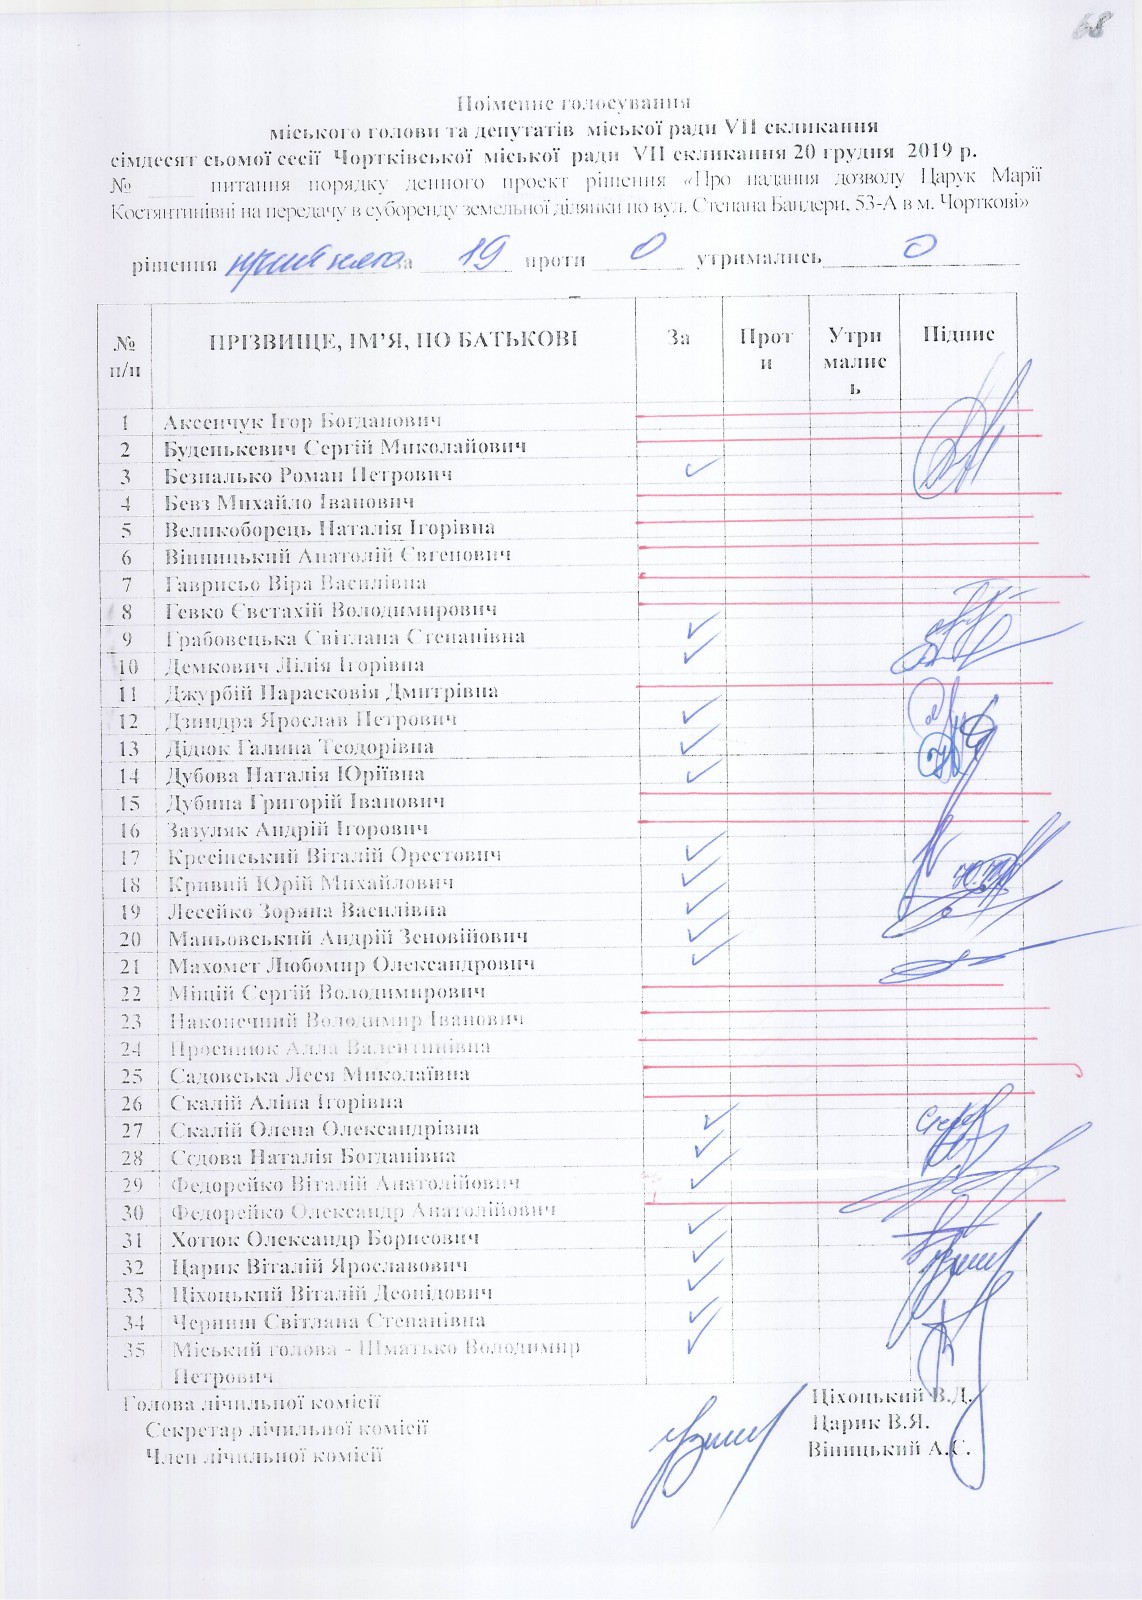 68
Поіменне голосування
міського голови та депутатів міської ради VII скликання
сімдесят сьомої сесії Чортківської міської ради VII скликання 20 грудня 2019 р.
№ ____ питання порядку денного проект рішення «Про надання дозволу Царук Марії
Костянтинівні на передачу в суборенду земельної ділянки по вул. Степана Бандери, 53-А в м. Чорткові»
рішення прийнято за 19 проти 0 утримались 0
№ п/п ПРІЗВИЩЕ, ІМ’Я, ПО БАТЬКОВІ За Проти Утрималиcь Підпис
1 Аксенчук Ігор Богданович
2 Буденькевич Сергій Миколайович
3 Безпалько Роман Петрович ✓
4 Бевз Михайло Іванович
5 Великоборець Наталія Ігорівна
6 Вінницький Анатолій Євгенович
7 Гаврисьо Віра Василівна
8 Гевко Євстахій Володимирович
9 Грабовецька Світлана Степанівна ✓
10 Демкович Лілія Ігорівна ✓
11 Джурбій Парасковія Дмитрівна
12 Дзиндра Ярослав Петрович ✓
13 Дідюк Галина Теодорівна ✓
14 Дубова Наталія Юріївна ✓
15 Дубина Григорій Іванович
16 Зазуляк Андрій Ігорович
17 Кресінський Віталій Орестович ✓
18 Кривий Юрій Михайлович ✓
19 Лесейко Зоряна Василівна ✓
20 Маньовський Андрій Зеновійович ✓
21 Махомет Любомир Олександрович ✓
22 Міщій Сергій Володимирович
23 Наконечний Володимир Іванович
24 Проснюк Алла Валентинівна
25 Садовська Леся Миколаївна
26 Скалій Аліна Ігорівна
27 Скалій Олена Олександрівна ✓
28 Сєдова Наталія Богданівна ✓
29 Федорейко Віталій Анатолійович ✓
30 Федорейко Олександр Анатолійович
31 Хотюк Олександр Борисович ✓
32 Царик Віталій Ярославович ✓
33 Ціхоцький Віталій Леонідович ✓
34 Черниш Світлана Степанівна ✓
35 Міський голова - Шматько Володимир ✓
Петрович
Голова лічильної комісії Ціхоцький В.Л.
Секретар лічильної комісії Царик В.Я.
Член лічильної комісії Віницький А.Є.